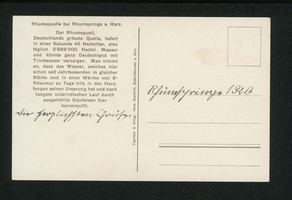 Rhumequelle bei Rhumspringe a. Harz.
Der Rhumequell,
Deutschlands grösste Quelle, liefert
in einer Sekunde 45 Hectoliter, also
täglich 3'888'000 Hectol. Wasser
und könnte ganz Deutschland mit
Trinkwasser versorgen. Man nimmt
an, dass das Wasser, welches hier
schon seit Jahrtausenden in gleicher
Stärke und in einer Wärme von 8°
Réaumur zu Tage tritt, in den Harz-
bergen seinen Ursprung hat und nach
langem unterirdischen Lauf durch
ausgehöhlte Gipsfelsen hier
hervorquillt.
Die herzlichsten Grüsse
Rhumspringe 1920